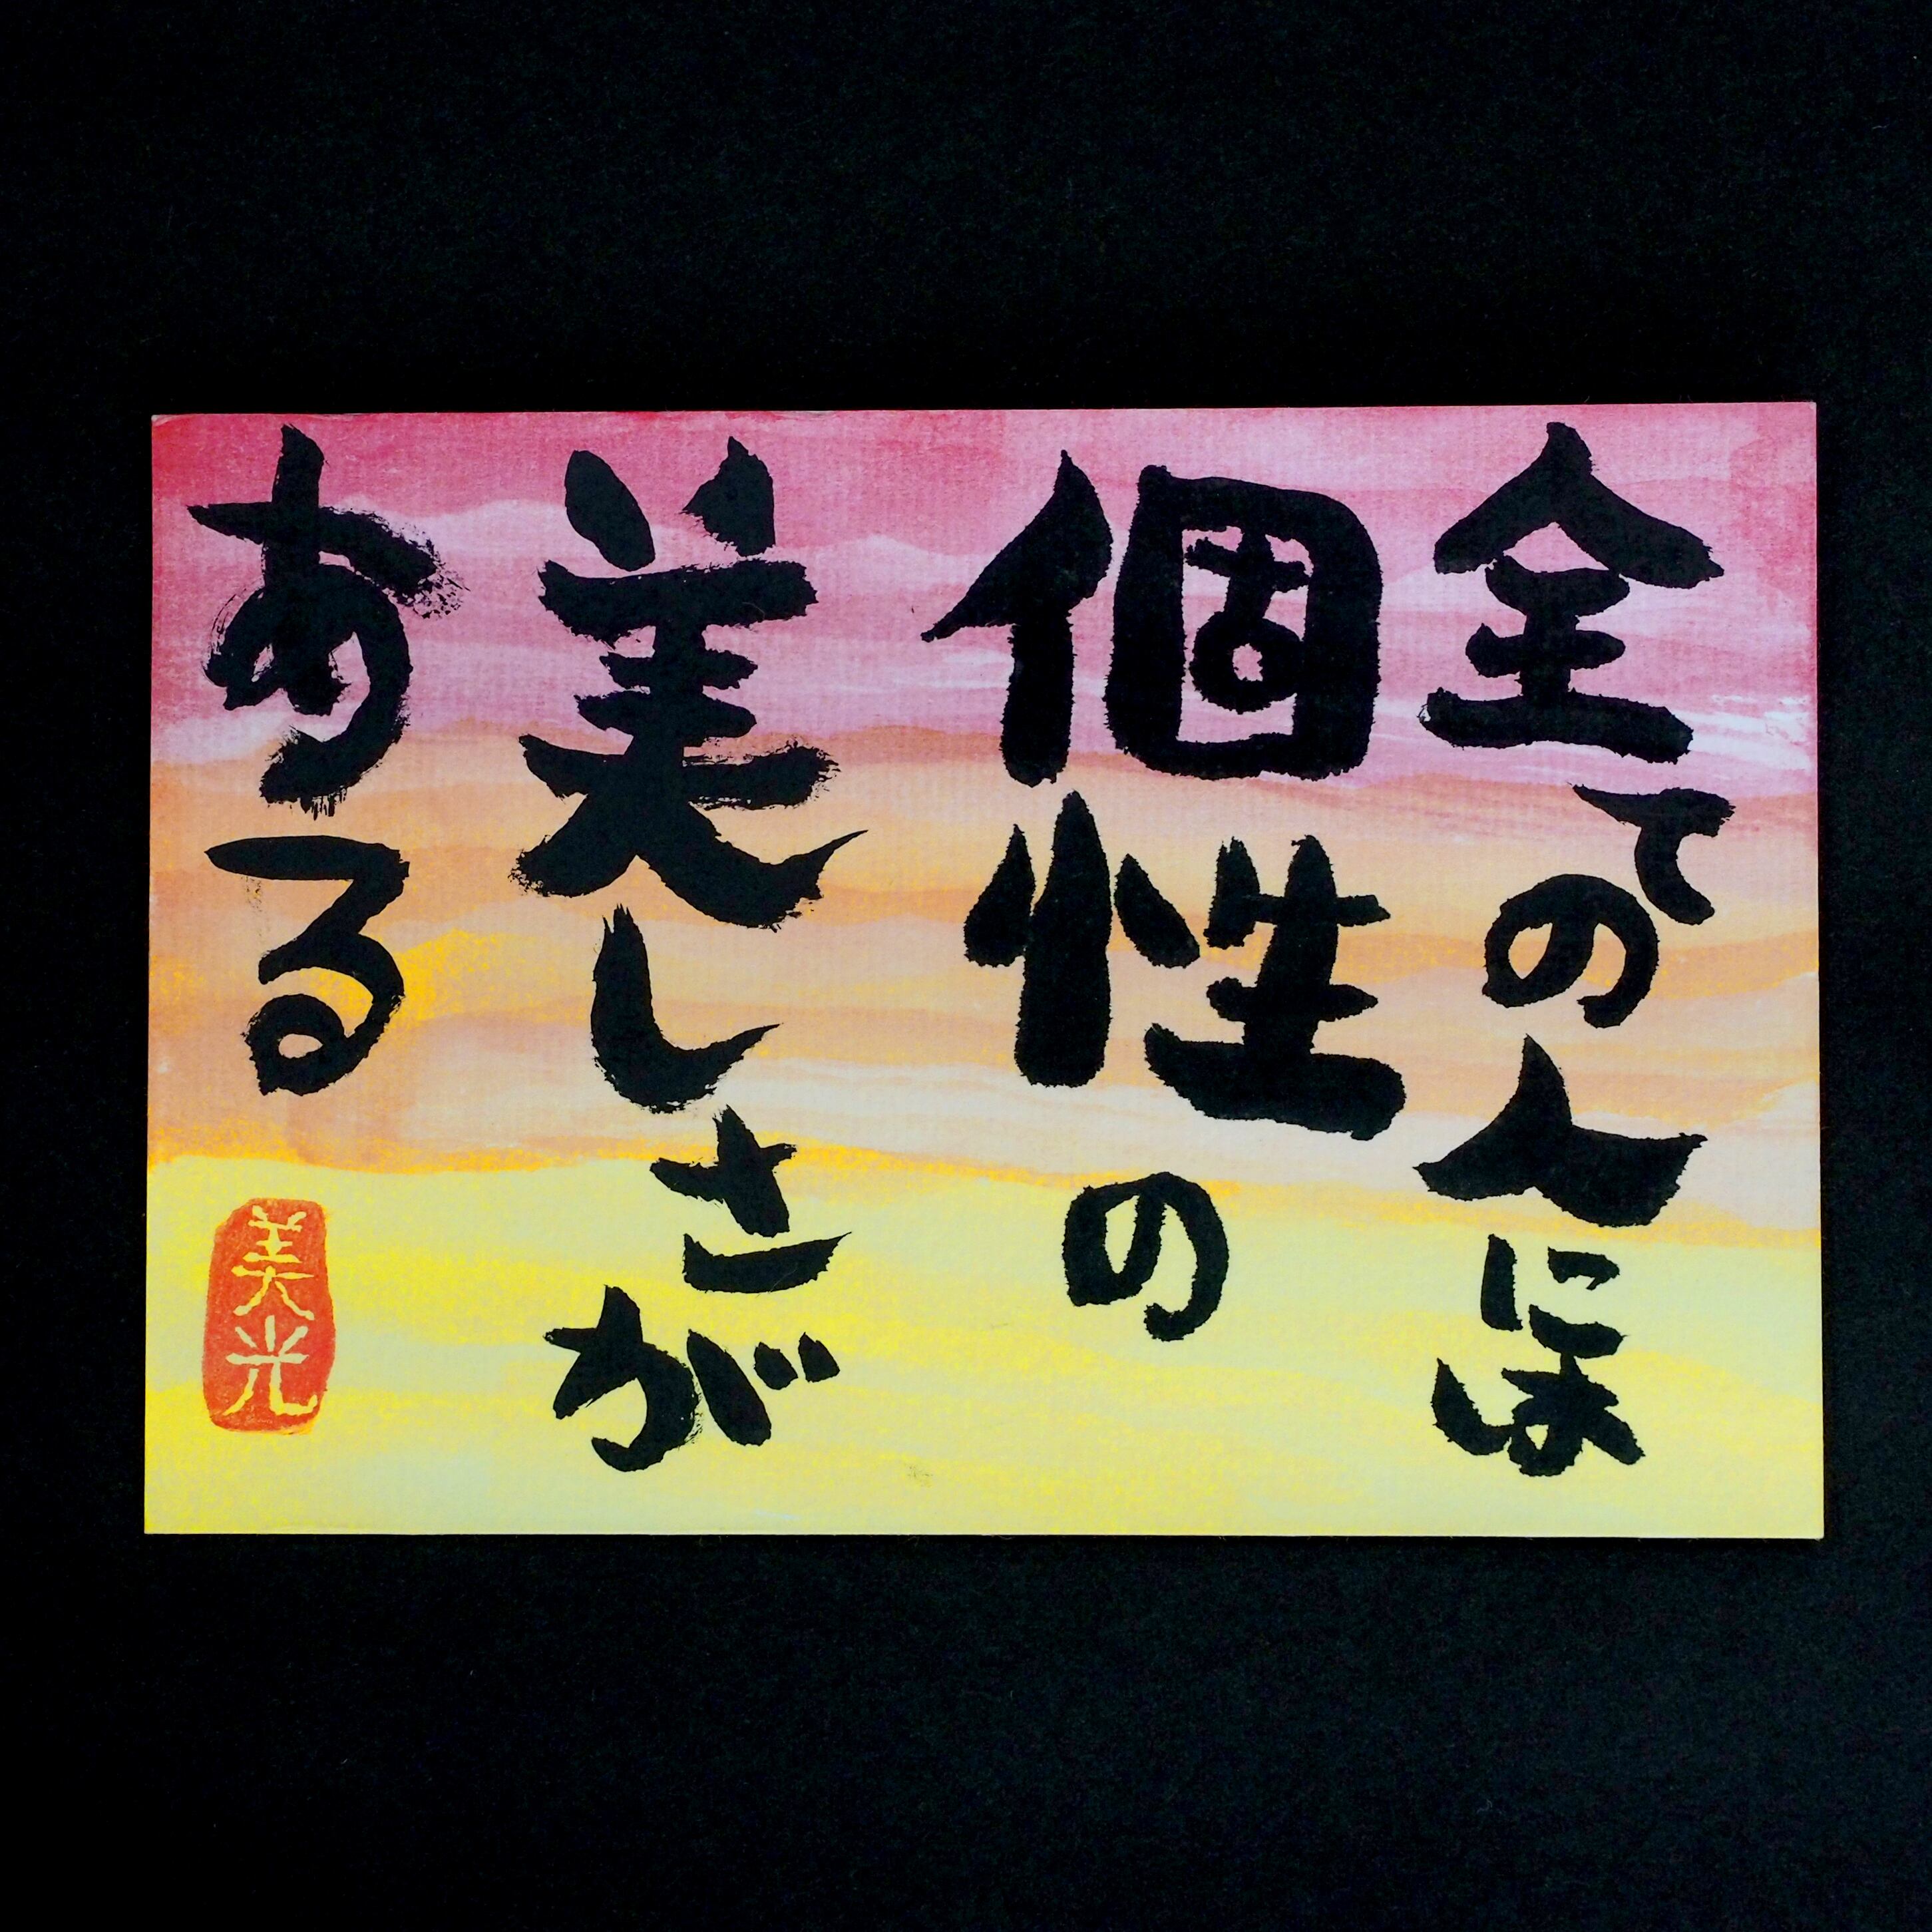 全ての人には
個性の
美しさが
ある
美光